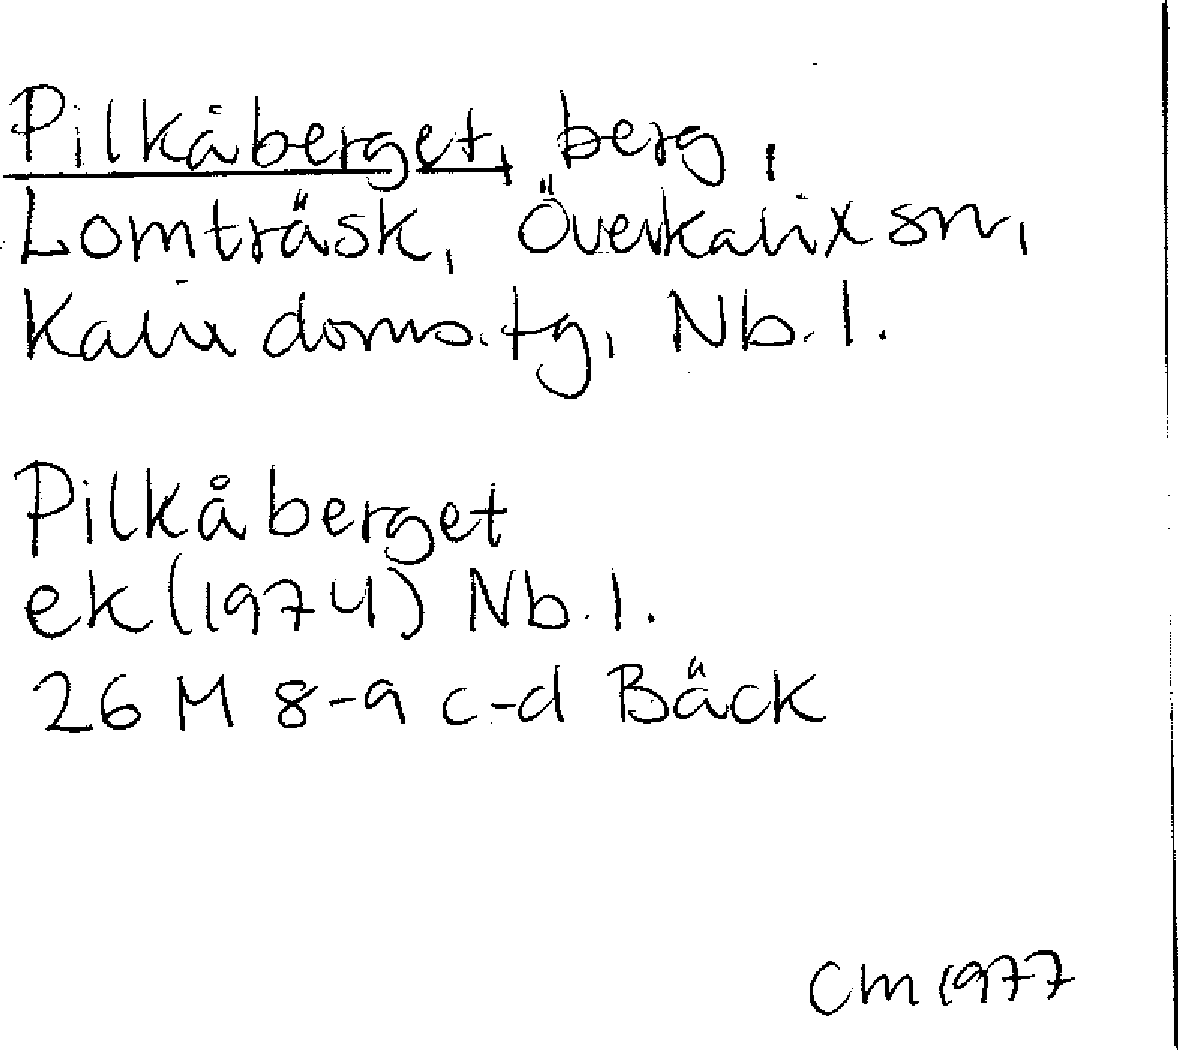 Pilkåberget, berg,
Lomträsk, Överkalix sn,
Kalix doms.tg, Nb.l.
Pilkåberget
ek (1974) Nb.l.
26 M 8-9 c-d Bäck
CM 1977